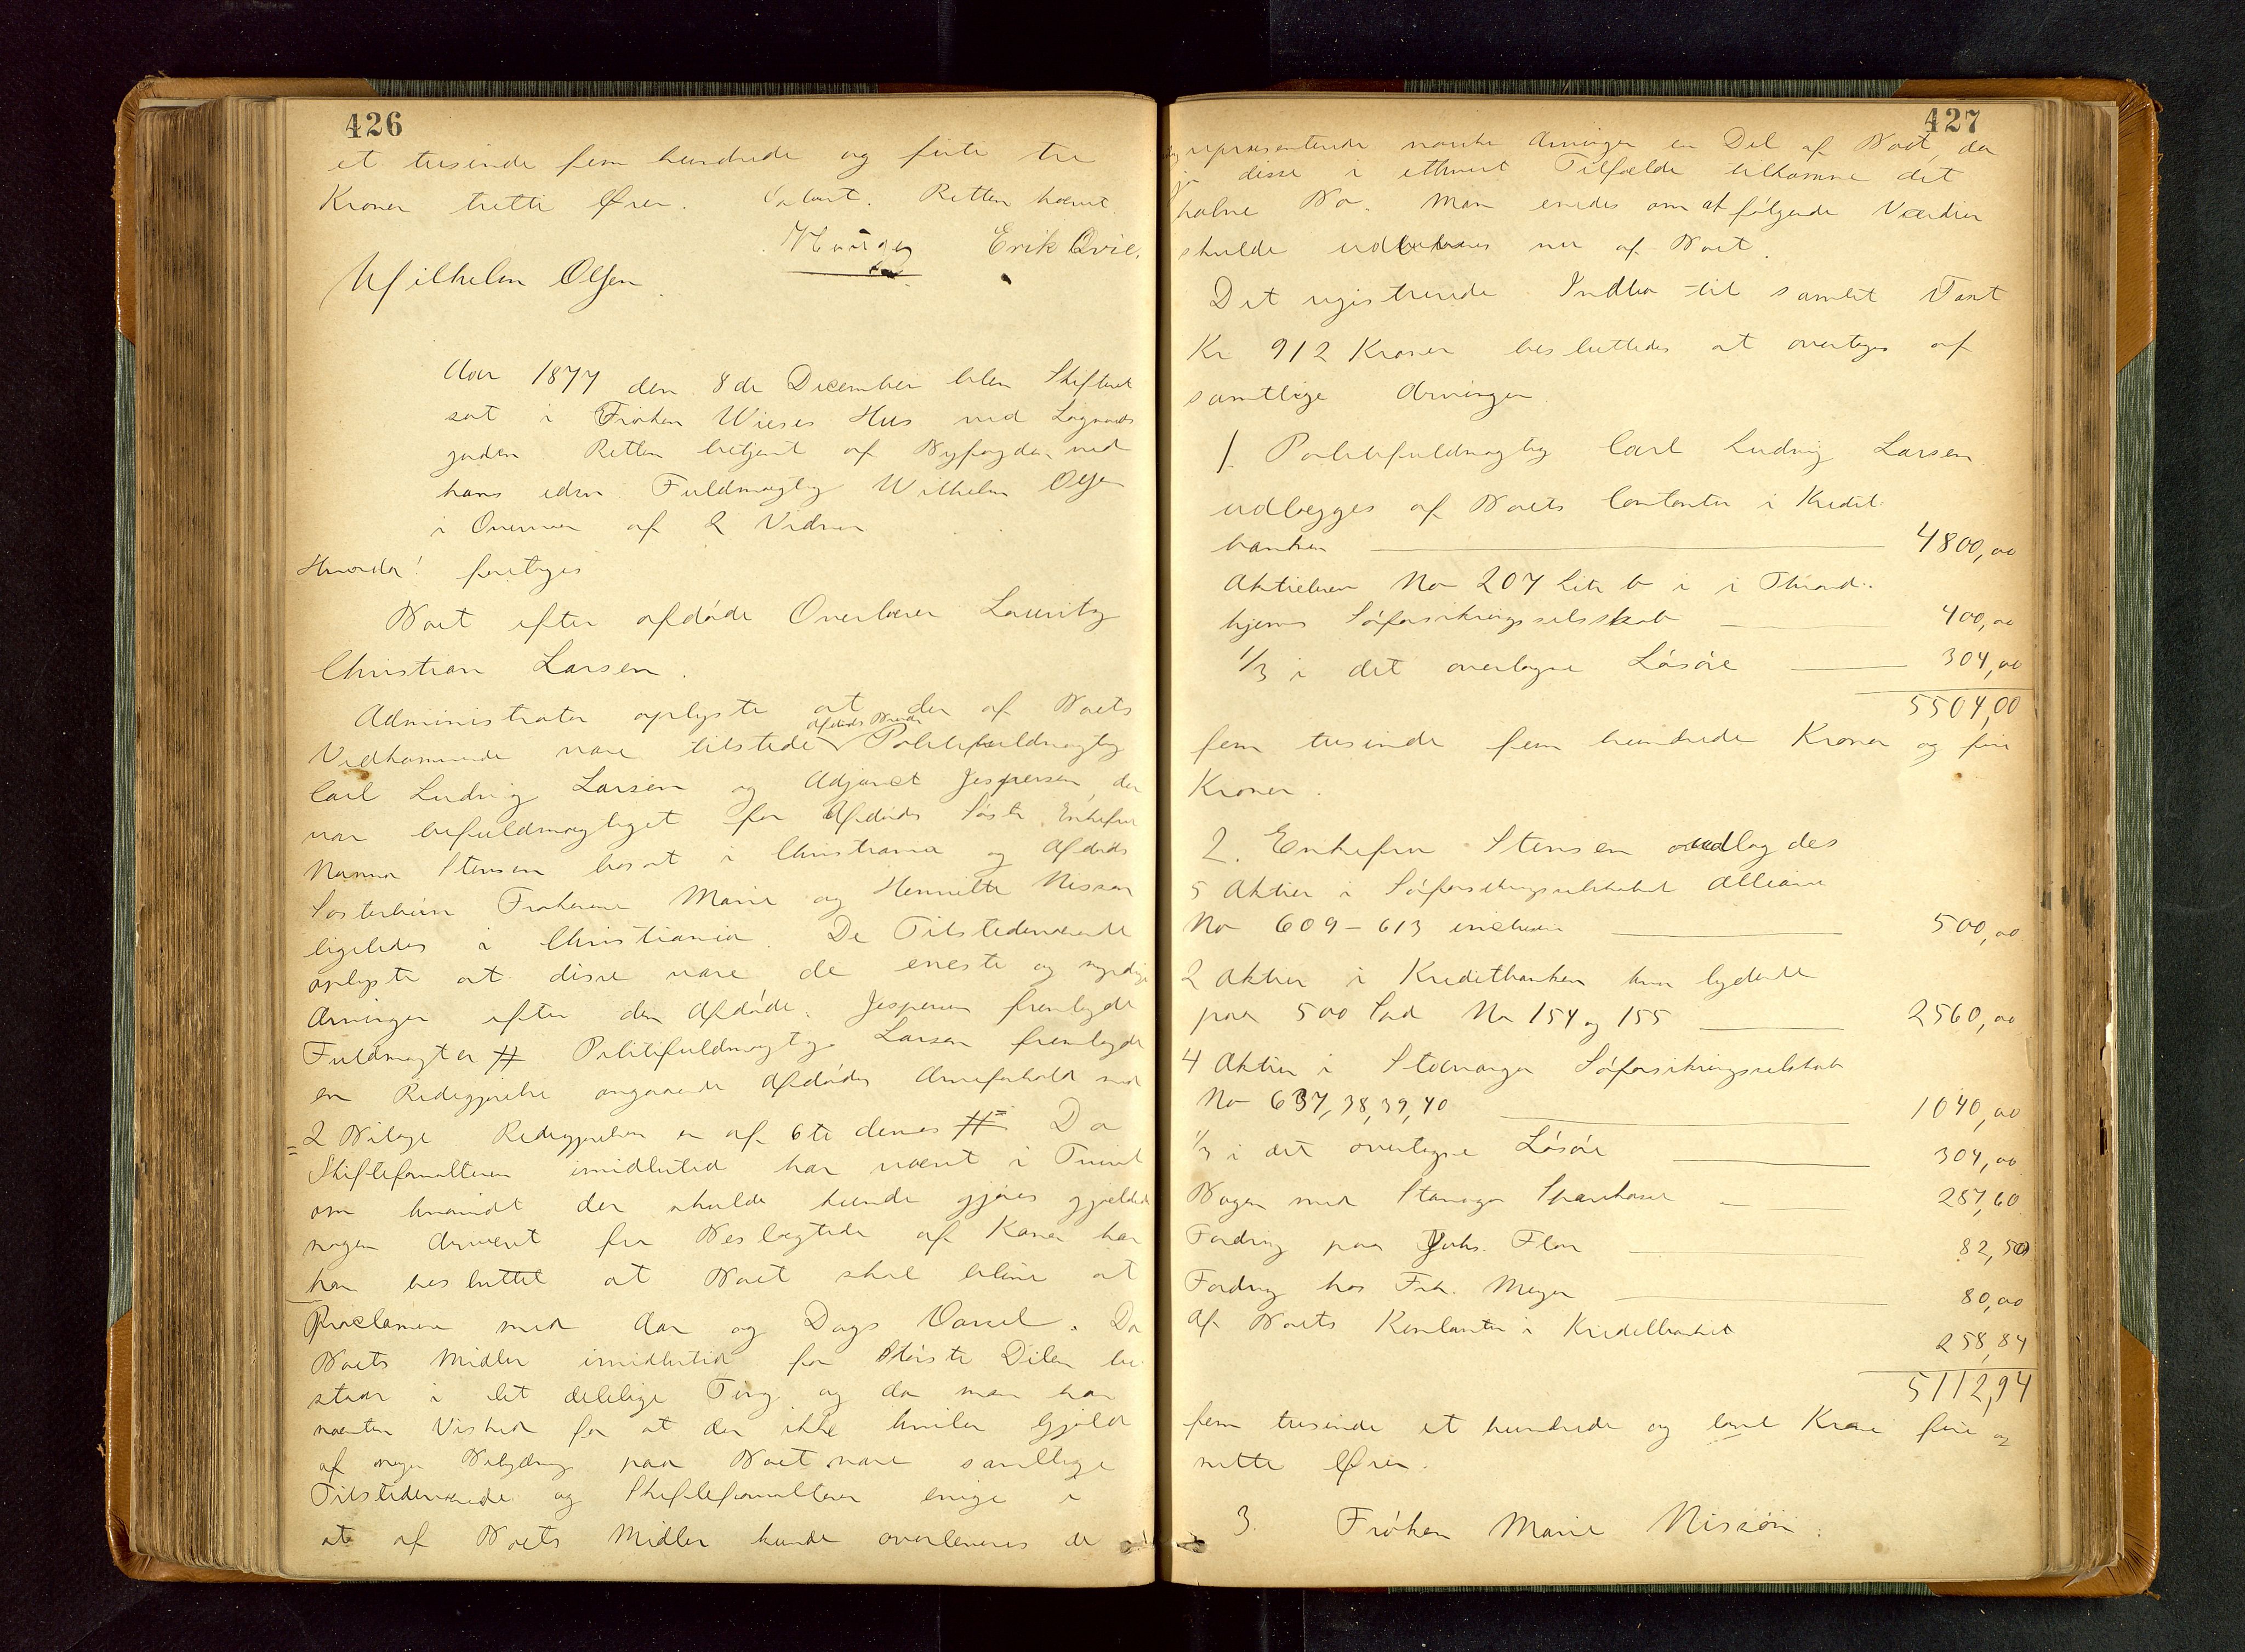 426
et tusinde fem hundrede og firti tre
Kroner tretti Ører. Sluttet. Retten hævet.
Erik Qvie.
Wilhelm Olsen.
Aar 1877 den 8de December blev Skifteret
sat i Frøken Wieses Hus ved Løgnaas
gaden Retten betjent af Byfogden ved
hans edsv. Fuldmægtig Wilhelm Olsen
i Overvær af 2 Vidner
Hvorda! foretoges
Boet efter afdøde Overlærer Lauritz
Christian Larsen.
Administrator oplyste at der af Boets
Vedkommende vare tilstede afdødes Broder Politifuldmægtig
Carl Ludvig Larsen og Adjunct Jespersen, der
var befuldmægtiget for Afdødes Søster Enkefru
Nanna Stensen bosat i Christiania og Afdødes
Søsterbørn Frøkenerne Marie og Henriette Nissen
ligeledes i Christiania. De Tilstedeværende
oplyste at disse vare de eneste og myndige
Arvinger efter den Afdøde. Jespersen fremlagde
Fuldmagter # Politifuldmægtig Larsen fremlagde
en Redegjørelse angaaende Afdødes Arveforhold med
= 2 Bilage Redegjørelsen er af 6te dennes #= Da
Skifteforvalteren imidlertid har været i Tvivl
om hvorvidt der skulde kunde gjøres gjældende
nogen Arveret fra Beslægtede af Konen har
han besluttet at Boet skal blive at
Proclamere med Aar og Dags Varsel. Da
Boets Midler imidlertid for Største Delen be
staar i let delelige Ting og da man har
næsten Vished for at der ikke hviler Gjæld
af nogen Betydning paa Boet vare samtlige
Tilstedeværende og Skifteforvalteren enige i
at af Boets Midler kunde overleveres de
427
repræsenterede norske Arvinger en Del af Boet, da
jo disse i ethvert Tilfælde tilkomme det
halve Bo. Man enedes om at følgende Værdier
skulde udleveres nu af Boet.
Det registrerede Indbo til samlet Taxt
Kr 912 Kroner besluttedes at overtages af
samtlige Arvinger.
1. Politifuldmægtig Carl Ludvig Larsen
udlægges af Boets Contanter i Kredit
banken 4800,00
Aktiebrev No 207 Litr b i i Thrond
hjems Søforsikringsselsskab 400,00
1/3 i det overtagne Løsøre 304,00
5504,00
fem tusinde fem hundrede Kroner og fire
Kroner.
2. Enkefru Stensen udlagdes
5 Aktier i Søforsikringsselskabet Alliance
No 609-613 inclusive 500,00
2 Aktier i Kreditbanken hver lydende
paa 500 Spd No 154 og 155 2560,00
4 Aktier i Stavanger Søforsikringsselskab
No 637, 38, 39, 40 1040,00
1/3 i det overtagne Løsøre 304,00
Bogen med Stavanger Sparekasse 287,60
Fordring paa Johs. Flor 82,50
Fordring hos Frk. Meyer 80,00
Af Boets Kontanter i Kreditbanken 258,84
5112,94
fem tusinde et hundrede og tolv Kroner fire og
nitti Ører.
3. Frøken Marie Nissen.